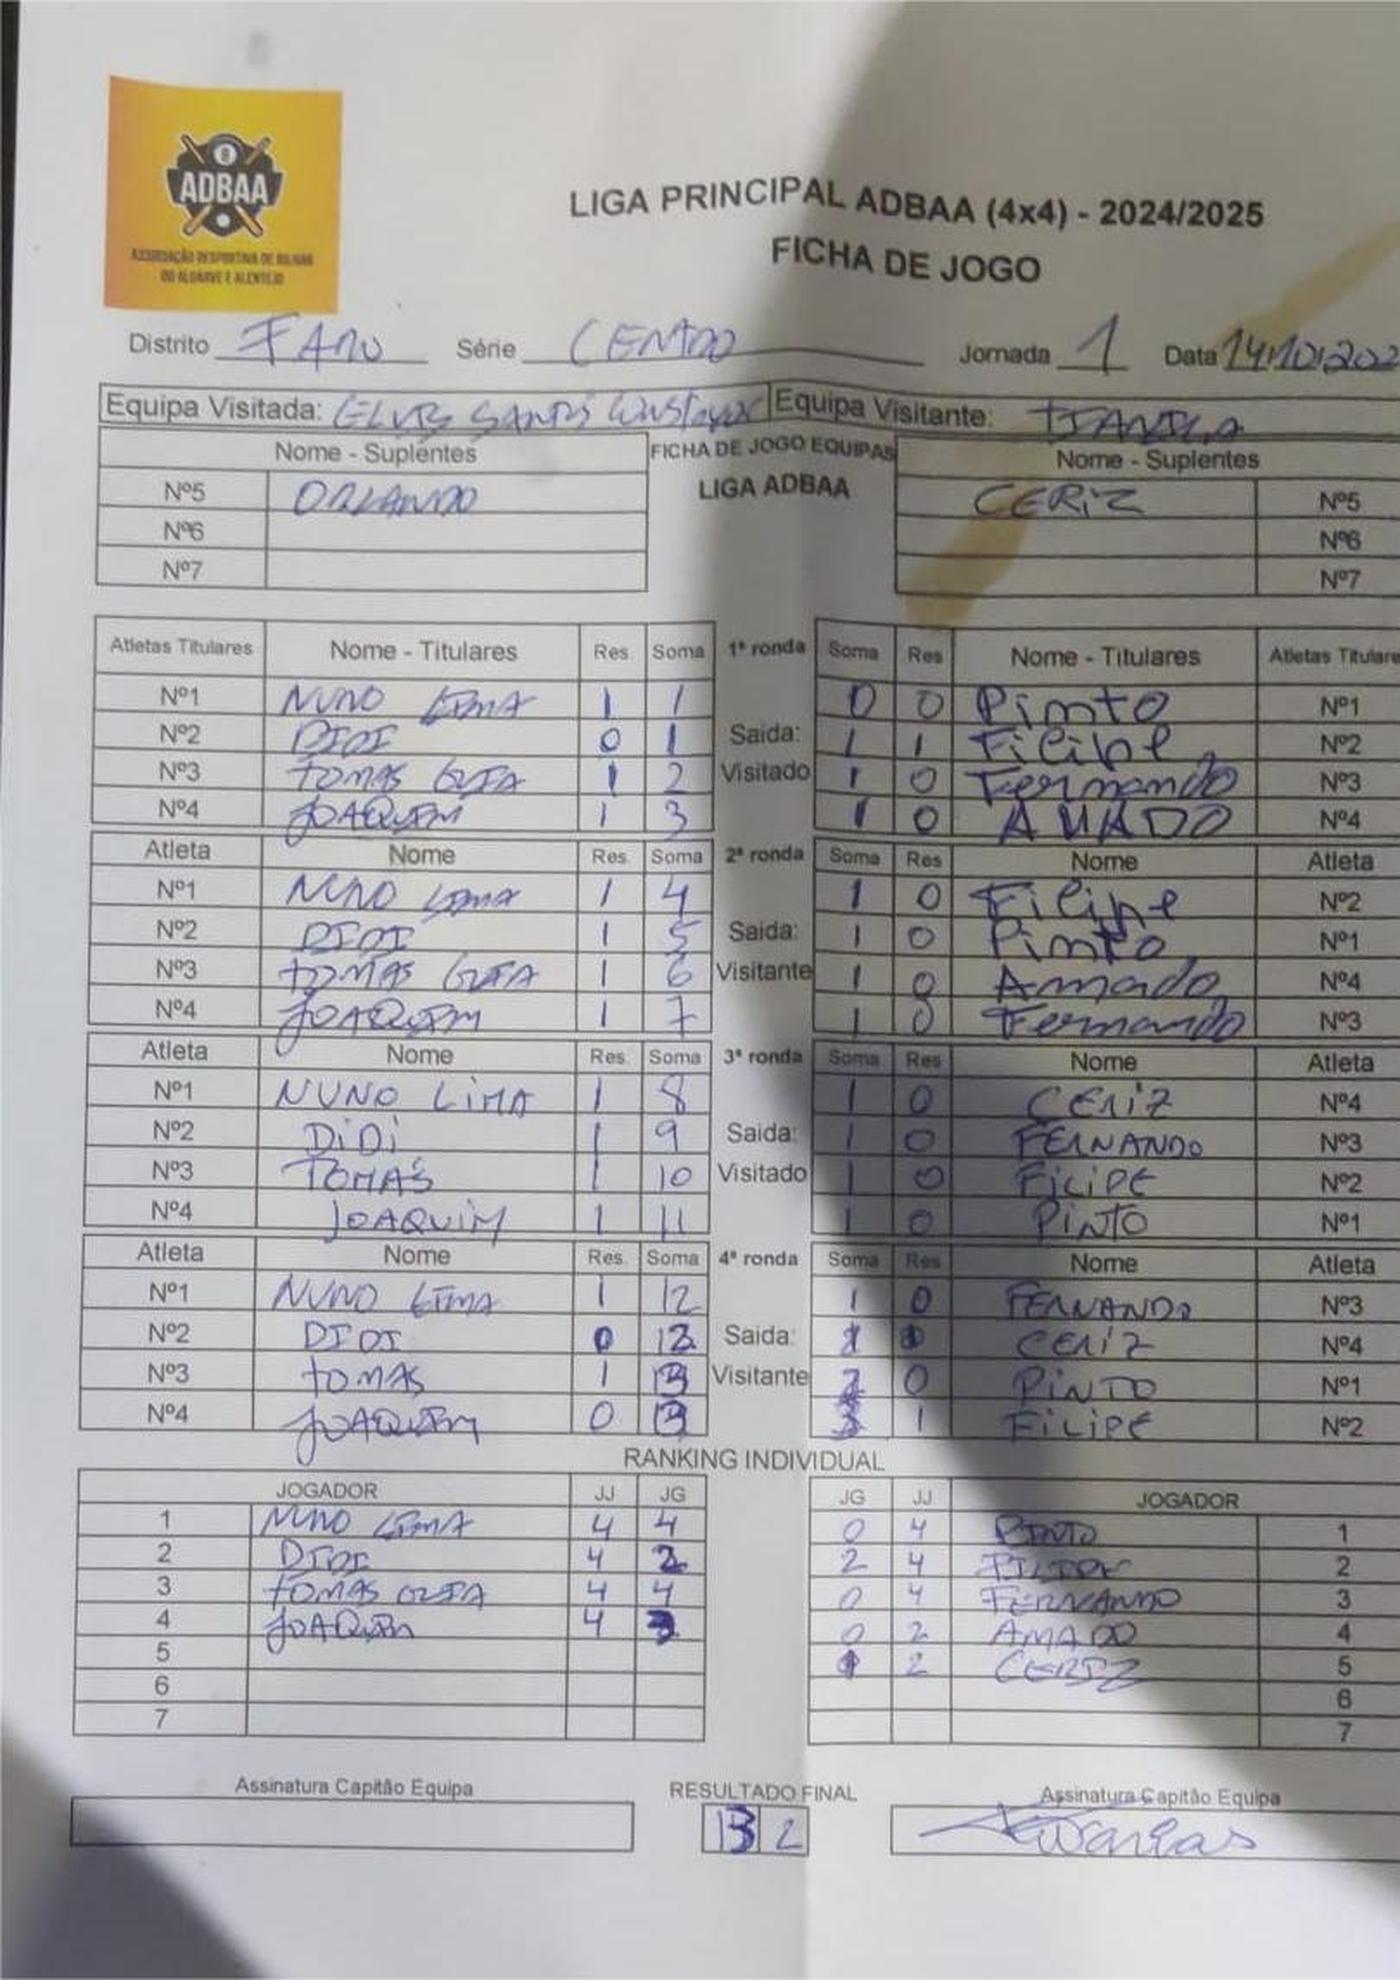 ADBAA
ASSOCIAÇÃO DESPORTIVA DE BILHAR
DO ALGARVE E ALENTEJO
LIGA PRINCIPAL ADBAA (4x4) - 2024/2025
FICHA DE JOGO
Distrito FARO Série CENTRO Jornada 1 Data 14/10/202
Equipa Visitada: ELVIS SANTOS Equipa Visitante:
Nome - Suplentes FICHA DE JOGO EQUIPAS Nome - Suplentes
LIGA ADBAA
Nº5 ORLANDO CERIZ Nº5
Nº6 Nº6
Nº7 Nº7
Atletas Titulares Nome - Titulares Res. Soma 1ª ronda Soma Res Nome - Titulares Atletas Titulare
Nº1 NUNO LIMA 1 1 0 0 Pinto Nº1
Nº2 DIDI 0 1 Saida: 1 1 Filipe Nº2
Nº3 TOMAS GUIA 1 2 Visitado 1 0 Fernando Nº3
Nº4 JOAQUIM 1 3 1 0 AMADO Nº4
Atleta Nome Res. Soma 2ª ronda Soma Res Nome Atleta
Nº1 NUNO LIMA 1 4 1 0 Filipe Nº2
Nº2 DIDI 1 5 Saida: 1 0 Pinto Nº1
Nº3 TOMAS GUIA 1 6 Visitante 1 0 Amado Nº4
Nº4 JOAQUIM 1 7 1 0 Fernando Nº3
Atleta Nome Res. Soma 3ª ronda Soma Res Nome Atleta
Nº1 NUNO LIMA 1 8 1 0 CERIZ Nº4
Nº2 DIDI 1 9 Saida: 1 0 FERNANDO Nº3
Nº3 TOMÁS 1 10 Visitado 1 0 FILIPE Nº2
Nº4 JOAQUIM 1 11 1 0 PINTO Nº1
Atleta Nome Res. Soma 4ª ronda Soma Res Nome Atleta
Nº1 NUNO LIMA 1 12 1 0 FERNANDO Nº3
Nº2 DIDI 0 12 Saida: CERIZ Nº4
Nº3 TOMAS 1 13 Visitante 2 0 PINTO Nº1
Nº4 JOAQUIM 0 13 3 1 FILIPE Nº2
RANKING INDIVIDUAL
JOGADOR JJ JG JG JJ JOGADOR
1 NUNO LIMA 4 4 0 4 PINTO 1
2 DIDI 4 2 2 4 FILIPE 2
3 TOMAS GUIA 4 4 0 4 FERNANDO 3
4 JOAQUIM 4 3 0 2 AMADO 4
5 2 CERIZ 5
6 6
7 7
Assinatura Capitão Equipa RESULTADO FINAL Assinatura Capitão Equipa
13 2